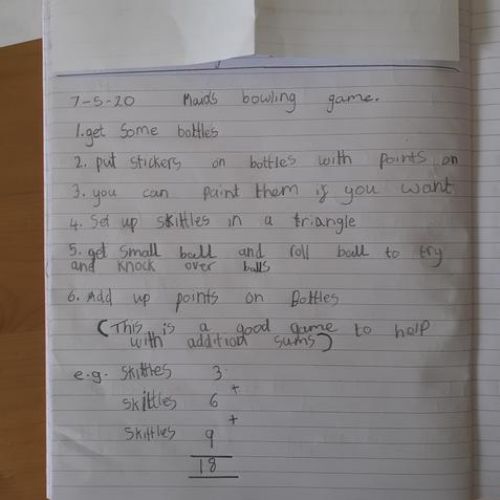 7-5-20 Maids bowling game.
1. get some bottles
2. put stickers on bottles with points on
3. you can paint them if you want
4. Set up skittles in a triangle
5. get small ball and roll ball to try
and knock over balls
6. Add up points on Bottles
(This is a good game to help
with addition sums)
e.g. skittles 3
+
skittles 6
+
skittles 9
18